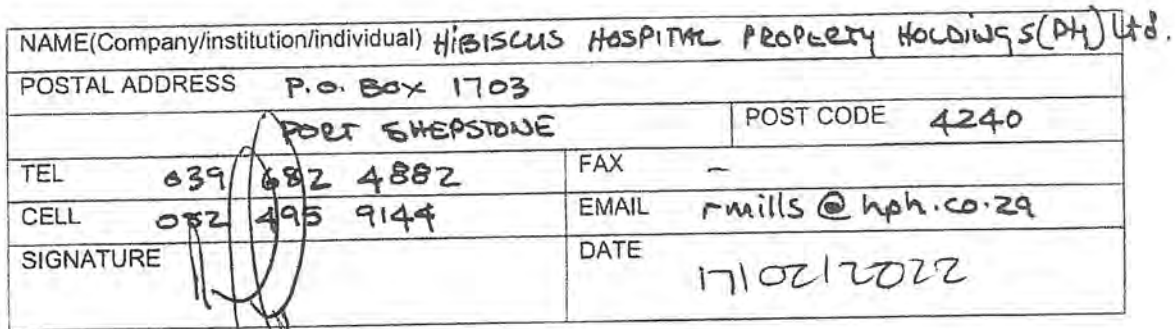 NAME(Company/institution/individual) HIBISCUS HOSPITAL PROPERTY HOLDINGS(Pty) Ltd.
POSTAL ADDRESS P.O. BOX 1703
PORT SHEPSTONE POST CODE 4240
TEL 039 682 4882 FAX -
CELL 082 495 9144 EMAIL rmills@hph.co.za
SIGNATURE DATE 17/02/2022